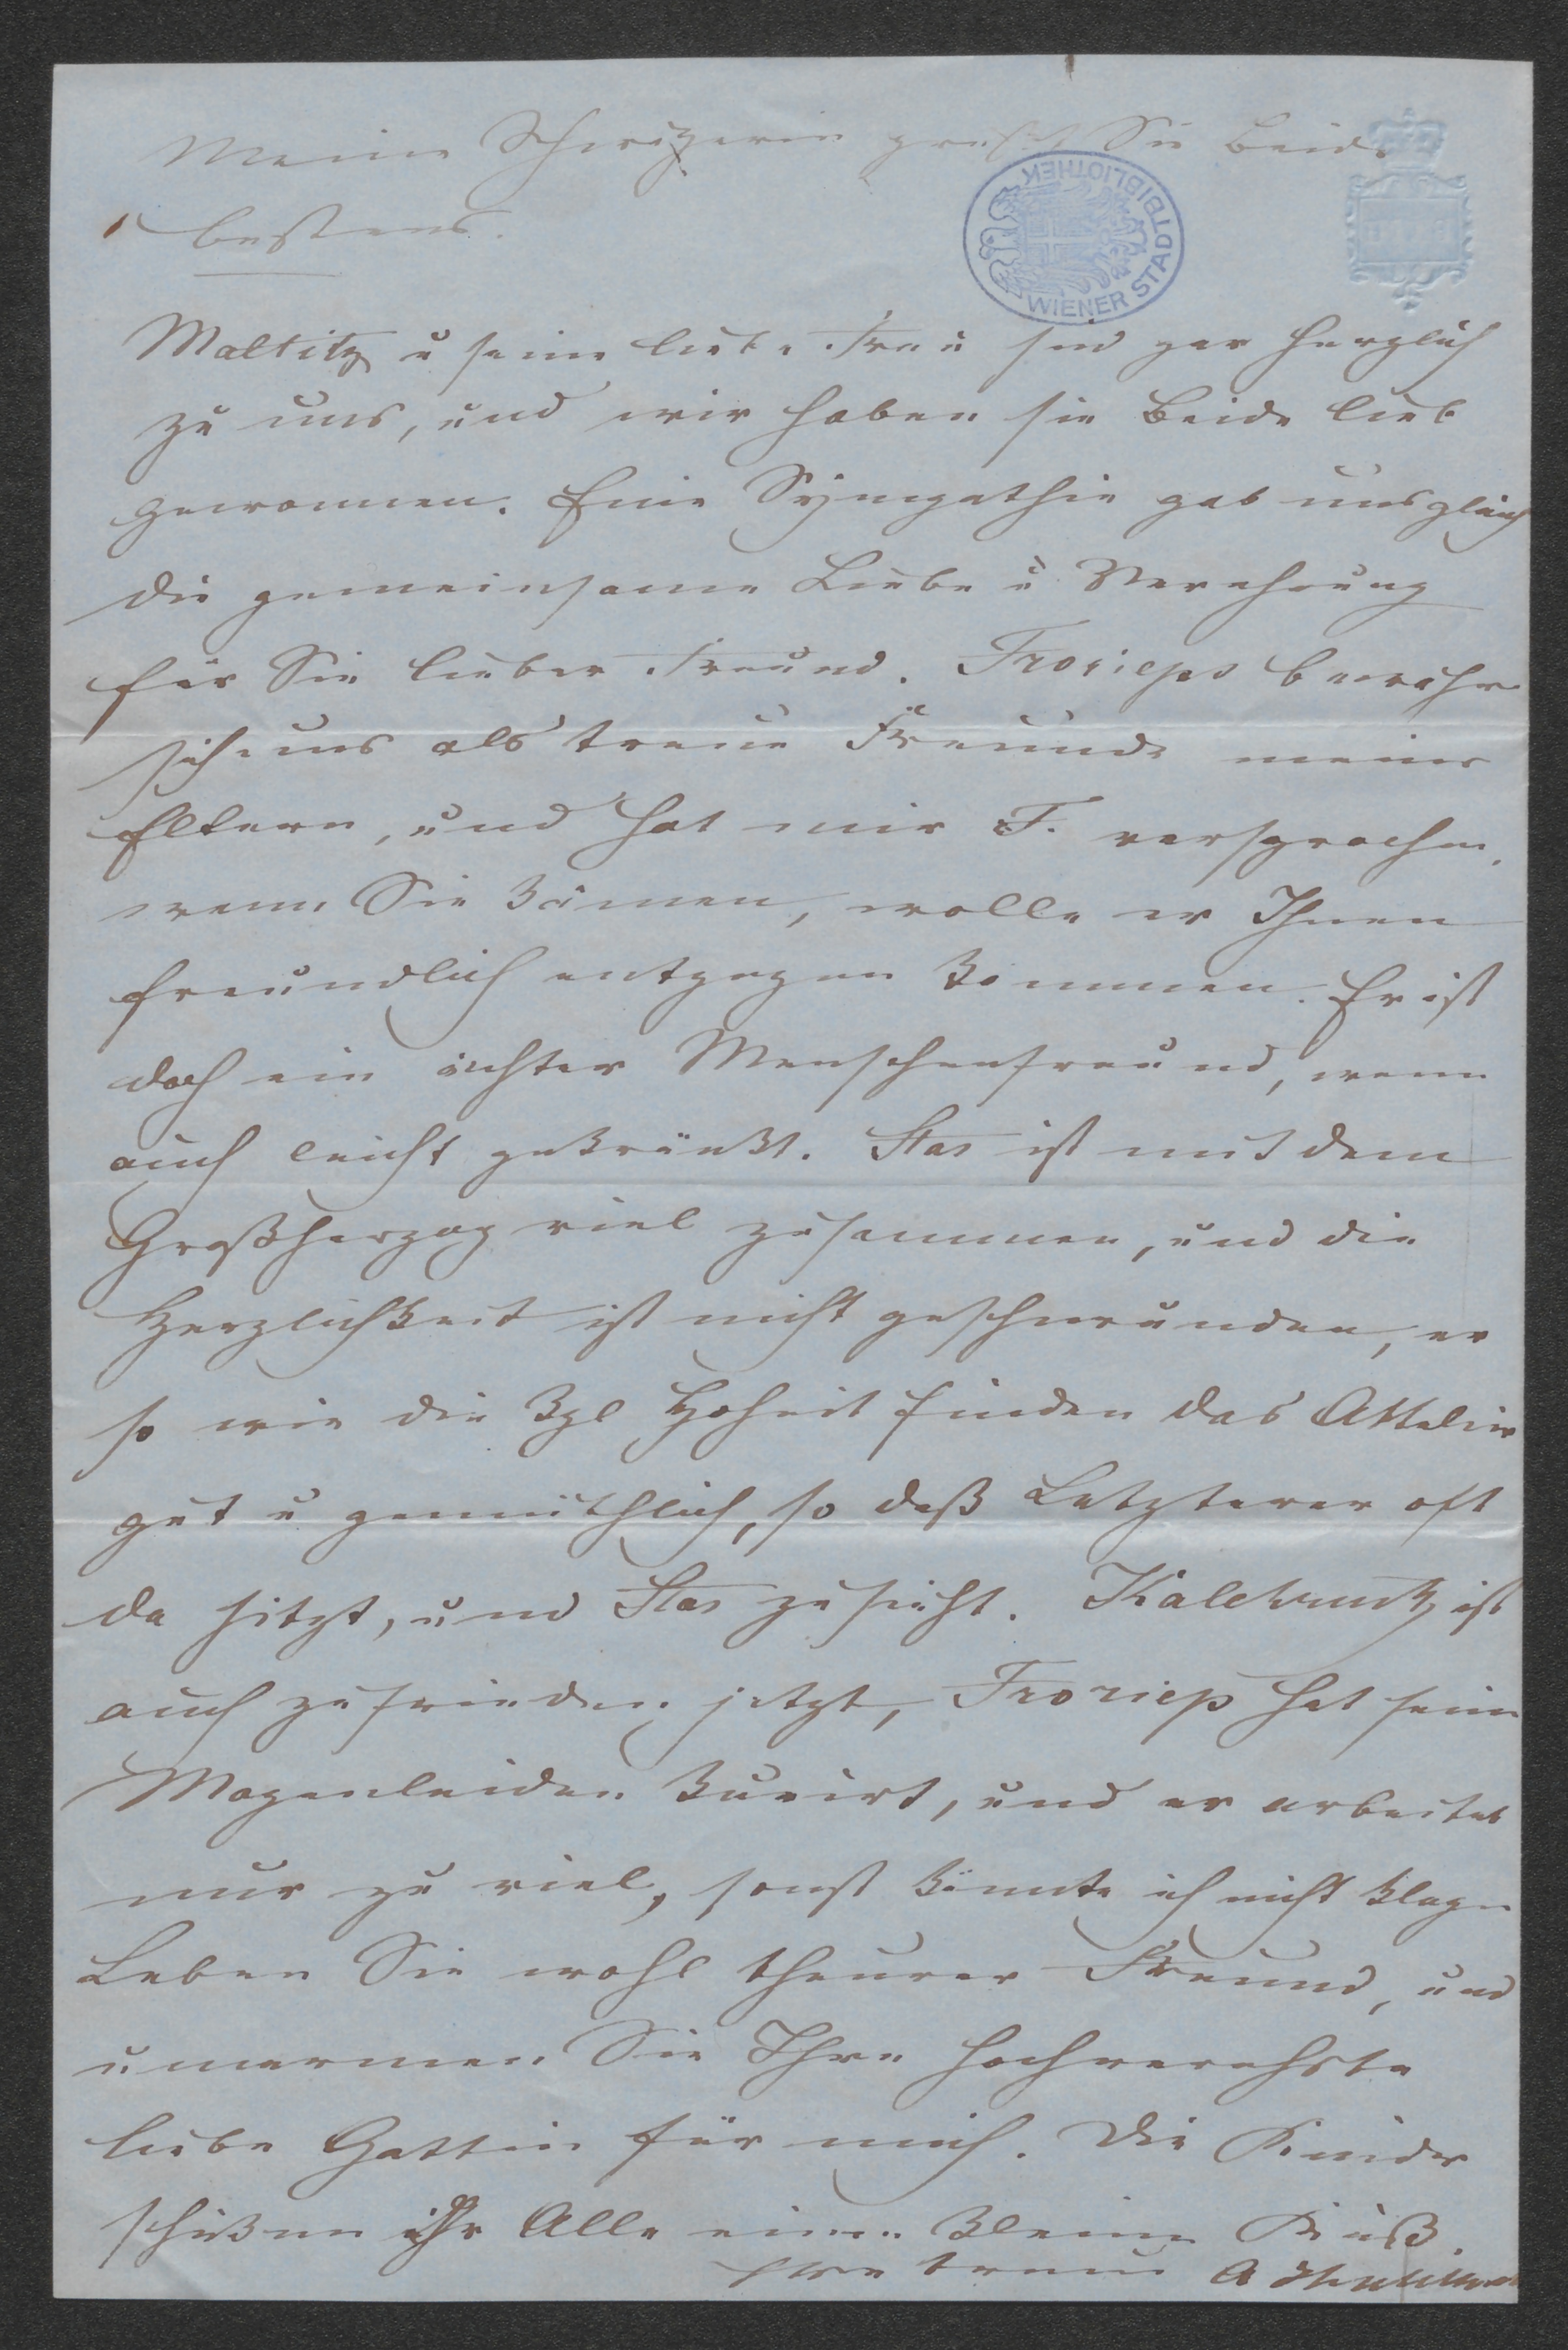 Meine Schwägerin grüßt Sie Beide
bestens.
WIENER STADTBIBLIOTHEK
Maltitz u seine liebe Frau sind gar herzlich
zu uns, und wir haben sie Beide lieb
gewonnen. Eine Sympathie gab uns gleich
die gemeinsame Liebe u Verehrung
für Sie lieber Freund. Frorieps bewähren
sich uns als treue Freunde meiner
Eltern, und hat mir F. versprochen,
wenn Sie kämen, wolle er Ihnen
freundlich entgegen kommen. Er ist
doch ein ächter Menschenfreund, wenn
auch leicht gekränkt. Stas ist mit dem
Großherzog viel zusammen, und die
Herzlichkeit ist nicht geschwunden, er
so wie die kgl Hoheit finden das Attelier
gut u gemüthlich, so daß Letzterer oft
da sitzt, und Stas zusieht. Kalckreuth ist
auch zufrieden jetzt, Froriep hat sein
Magenleiden kurirt, und er arbeitet
nur zu viel, sonst könnte ich nicht klagen
Leben Sie wohl theurer Freund, und
umarmen Sie Ihre hochverehrte
liebe Gattin für mich. Die Kinder
schicken ihr Alle einen kleinen Kuß.
Ihre treue A